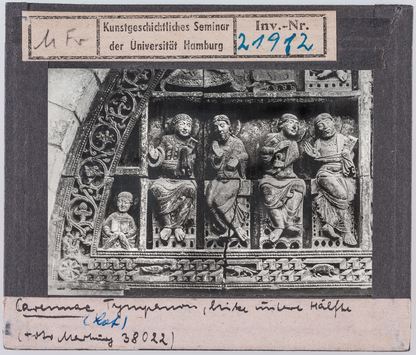 M Fr
Kunstgeschichtliches Seminar
der Universität Hamburg
Inv.-Nr.
21972
Carennac Tympanon, linke untere Hälfte
(Lot)
Marburg 38022)